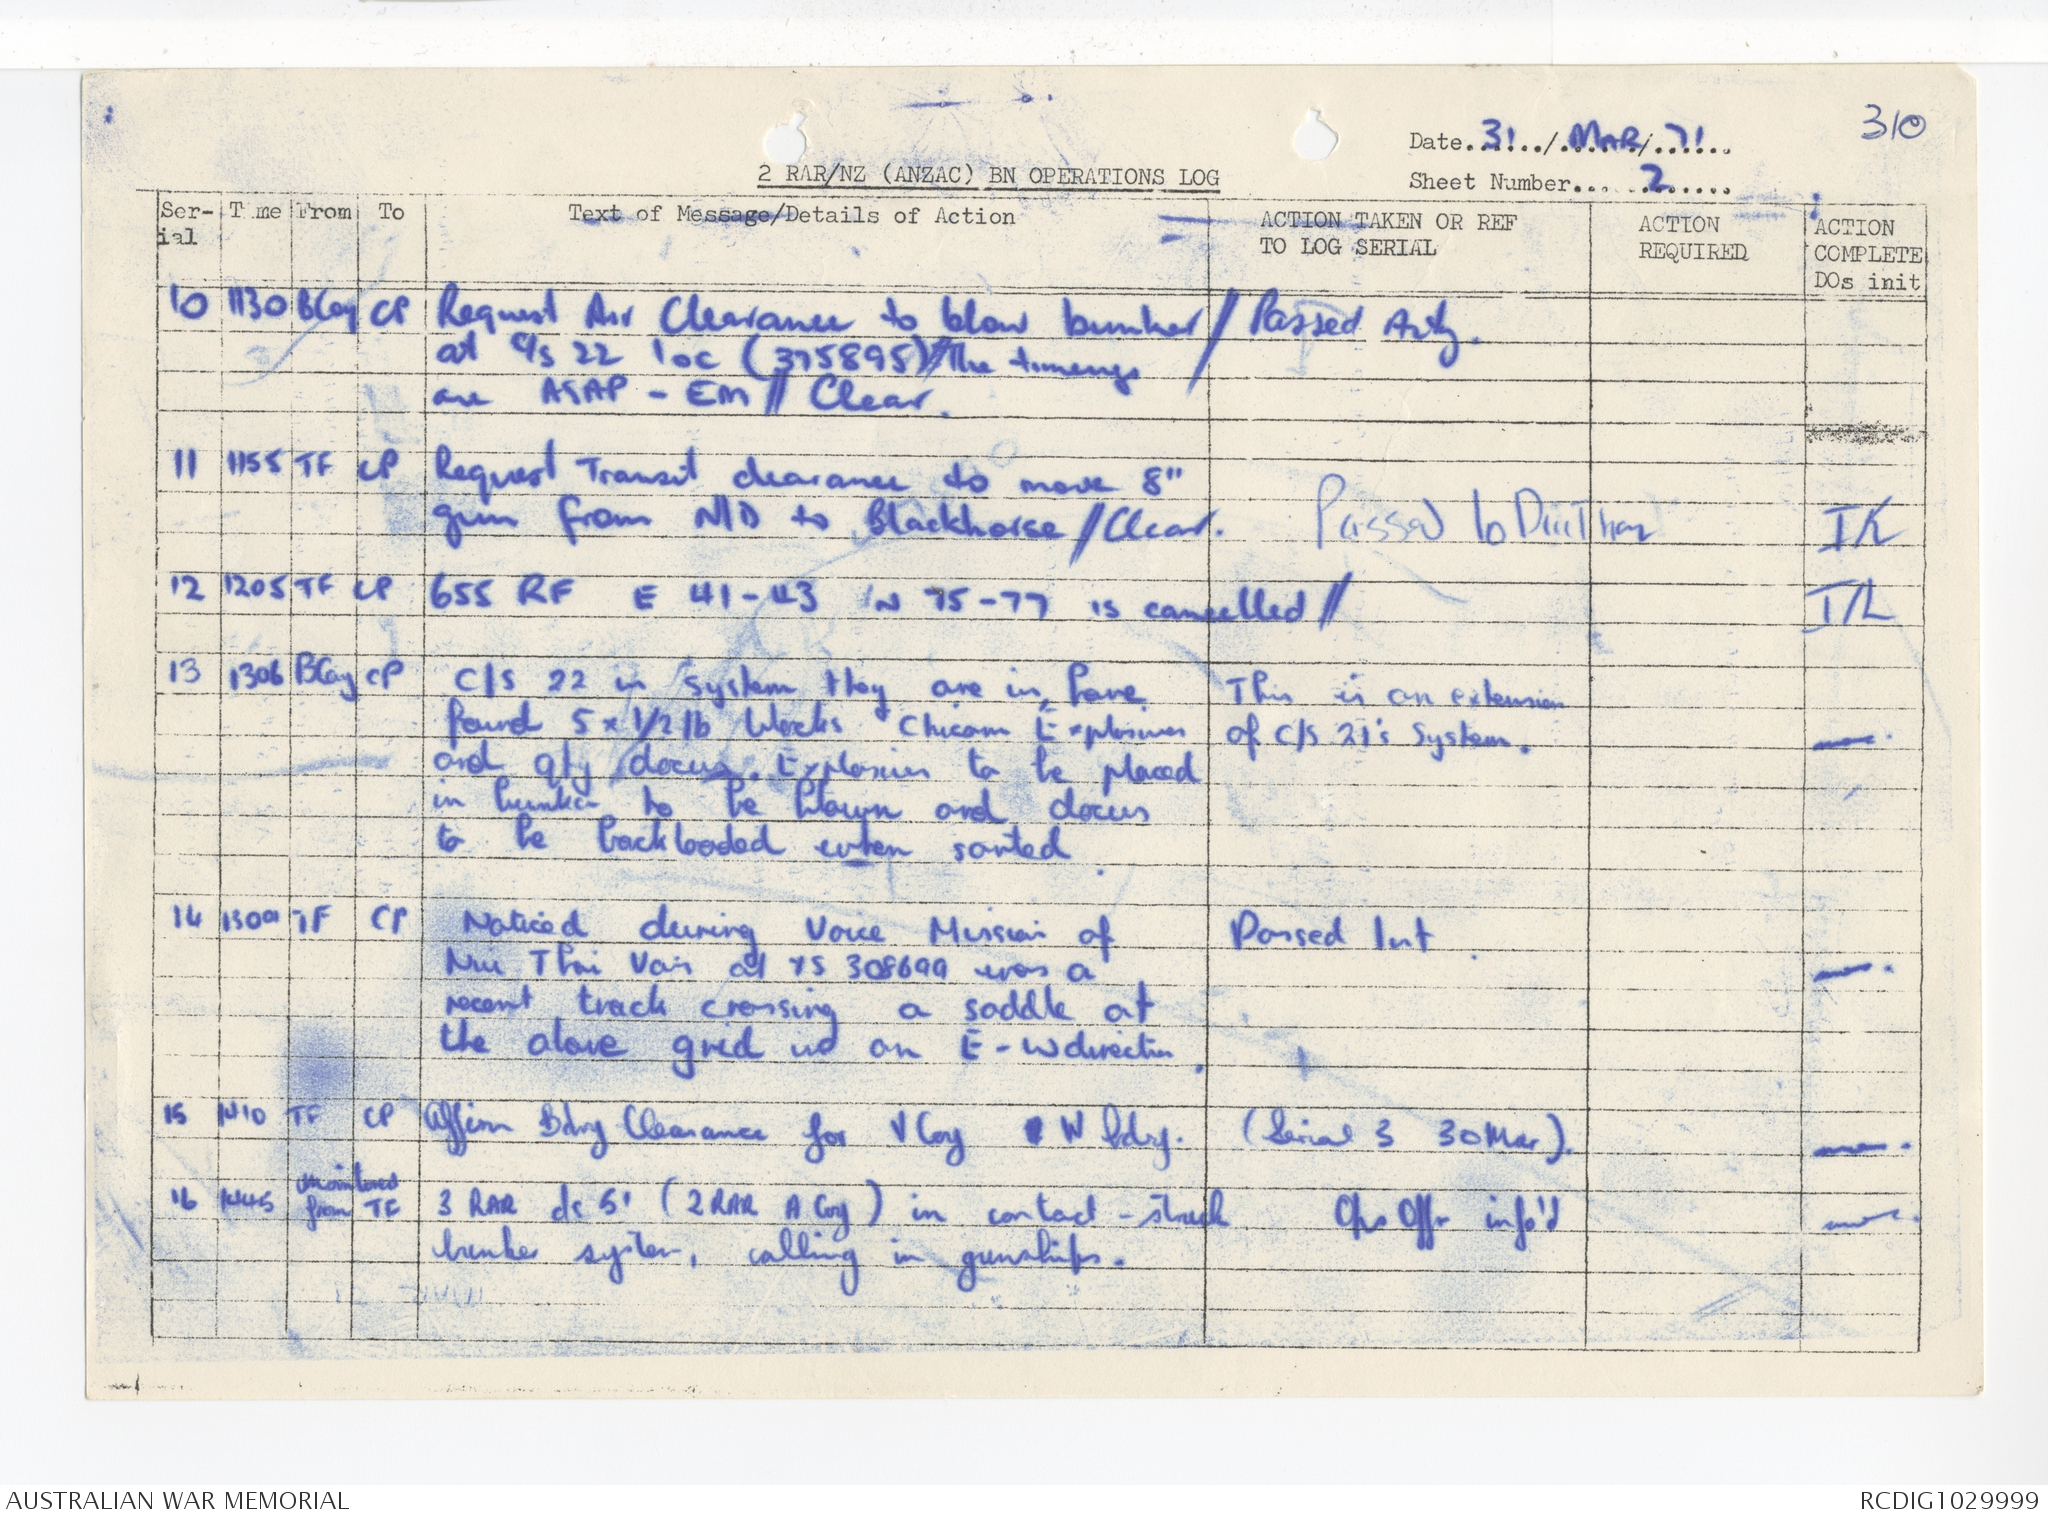 310
Date 31 / MAR / 71
2 RAR/NZ (ANZAC) BN OPERATIONS LOG
Sheet Number 2
Ser-ial Time From To Text of Message/Details of Action ACTION TAKEN OR REF TO LOG SERIAL ACTION REQUIRED ACTION COMPLETE DOs init
10 1130 BCoy CP Request Air Clearance to blow bunker // Passed Arty.
at C/S 22 loc (375895) // The timings
are ASAP - EM // Clear.
11 1155 TF CP Request Transit clearance to move 8"
gun from N/D to Blackhorse // Clear. Passed to
12 1205 TF CP 655 RF E 41-43 N 75-77 is cancelled //
13 1306 BCoy CP C/S 22 in system they are in, have This is an extension
found 5 x 1/2 lb blocks Chicom Explosives of C/S 21's System.
and qty docus. Explosives to be placed
in bunker to be blown and docus
to be backloaded when sorted.
14 1309 TF CP Noticed during Voice Mission of Passed Int
Nui Thai Vais at YS 308699 was a
recent track crossing a saddle at
the above grid in an E-W direction.
15 1410 TF CP Affirm Bdry Clearance for V Coy W bdry. (Serial 3 30 Mar).
16 1445 Monitored from TF 3 RAR (2 RAR A Coy) in contact - struck Ops Offr info'd
bunker system, calling in gunships.
AUSTRALIAN WAR MEMORIAL
RCDIG1029999